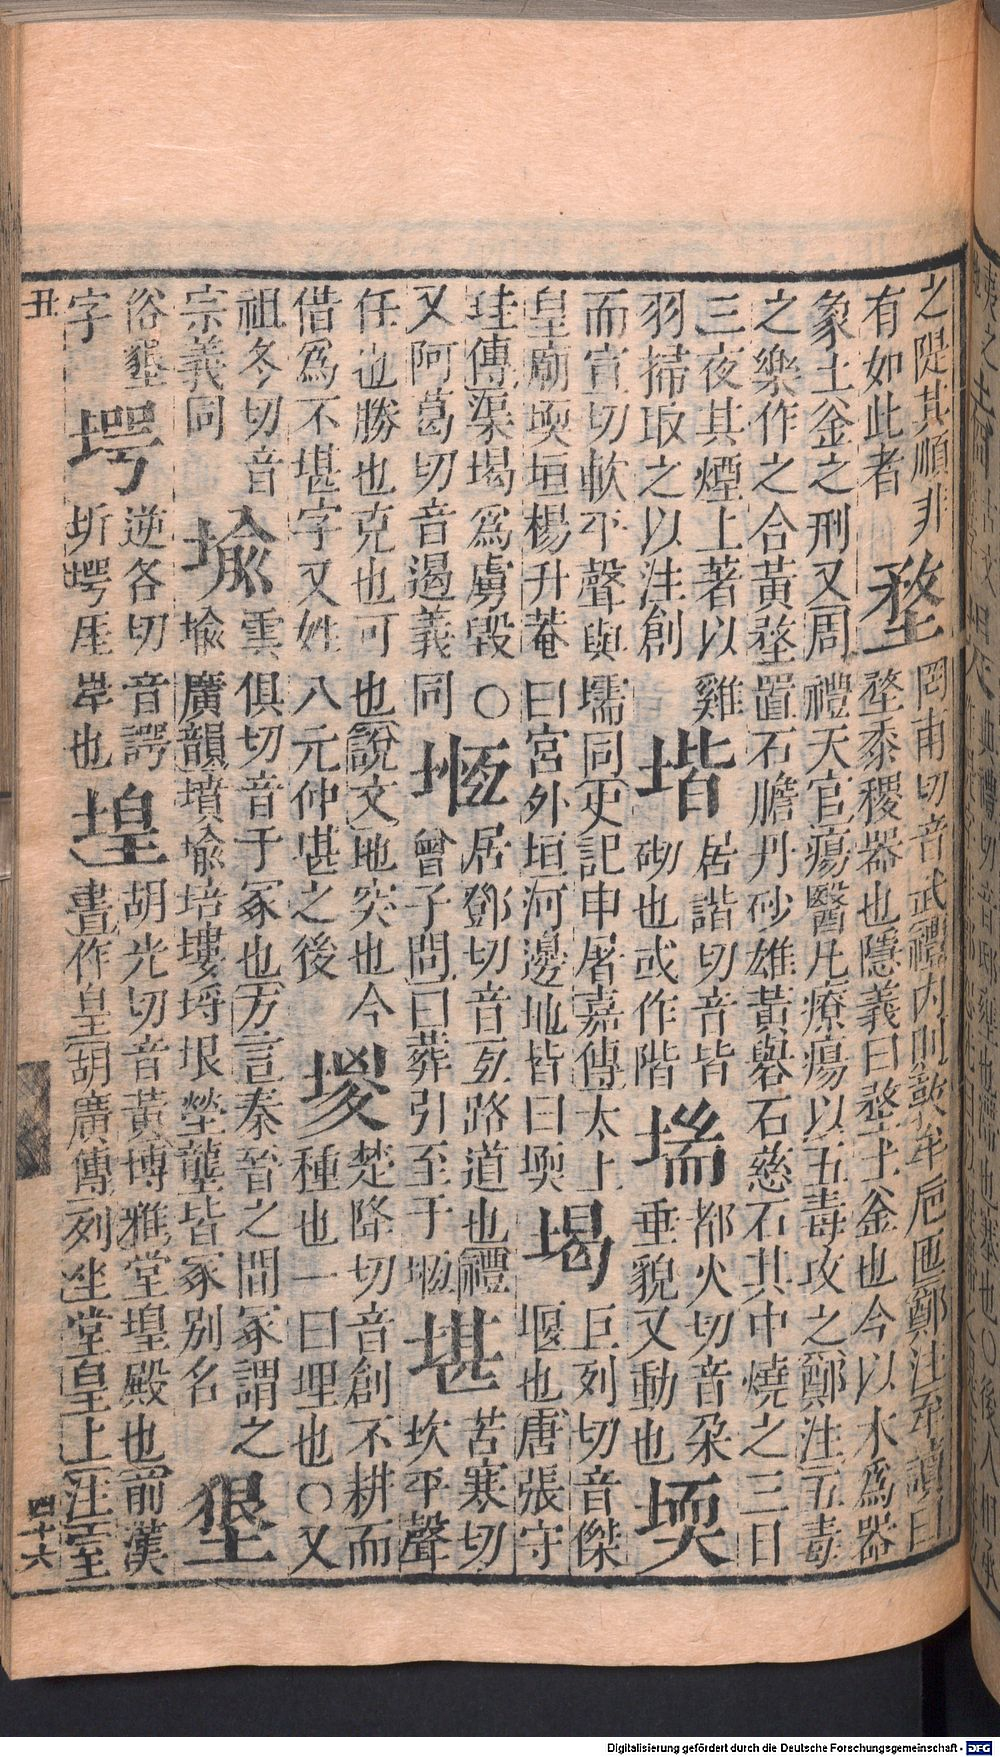 之隄其順非
有如此者
堥
罔甫切音武禮內則敦牟卮匜鄭注牟讀曰
堥黍稷器也隱義曰堥土釜也今以木爲器
象土釜之刑又周禮天官瘍醫凡療瘍以五毒攻之鄭注五毒
之樂作之合黃堥置石膽丹砂雄黃礜石慈石其中燒之三日
三夜其煙上著以雞
羽掃取之以注創
堦
居諧切音皆
砌也或作階
㙐
都火切音朶
垂貌又動也
堧
而宣切軟平聲與壖同史記申屠嘉傳太上
皇廟堧垣楊升菴曰宮外垣河邊地皆曰堧
堨
巨列切音傑
堰也唐張守
珪傳渠堨爲虜毀○
又阿葛切音遏義同
堩
居鄧切音亙路道也禮
曾子問曰葬引至于堩
堪
苦寒切
坎平聲
任也勝也克也可也說文地突也今
借爲不堪字又姓八元仲堪之後
堫
楚降切音創不耕而
種也一曰埋也○又
祖冬切音
宗義同
堬
雲俱切音于冢也方言秦晉之間冢謂之
堬廣韻墳堬培塿埓埌塋壟皆冢別名
俗墾
字
堮
逆各切音諤
圻堮厓岸也
堭
胡光切音黃博雅堂堭殿也前漢
晝作皇胡廣傳列坐堂皇上注室
丑 四十六
Digitalisierung gefördert durch die Deutsche Forschungsgemeinschaft - DFG